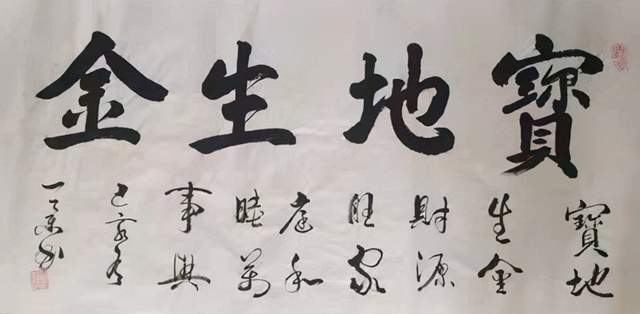 寶地生金
寶地
生金
財源
旺家
庭和
睦萬
事興
己亥